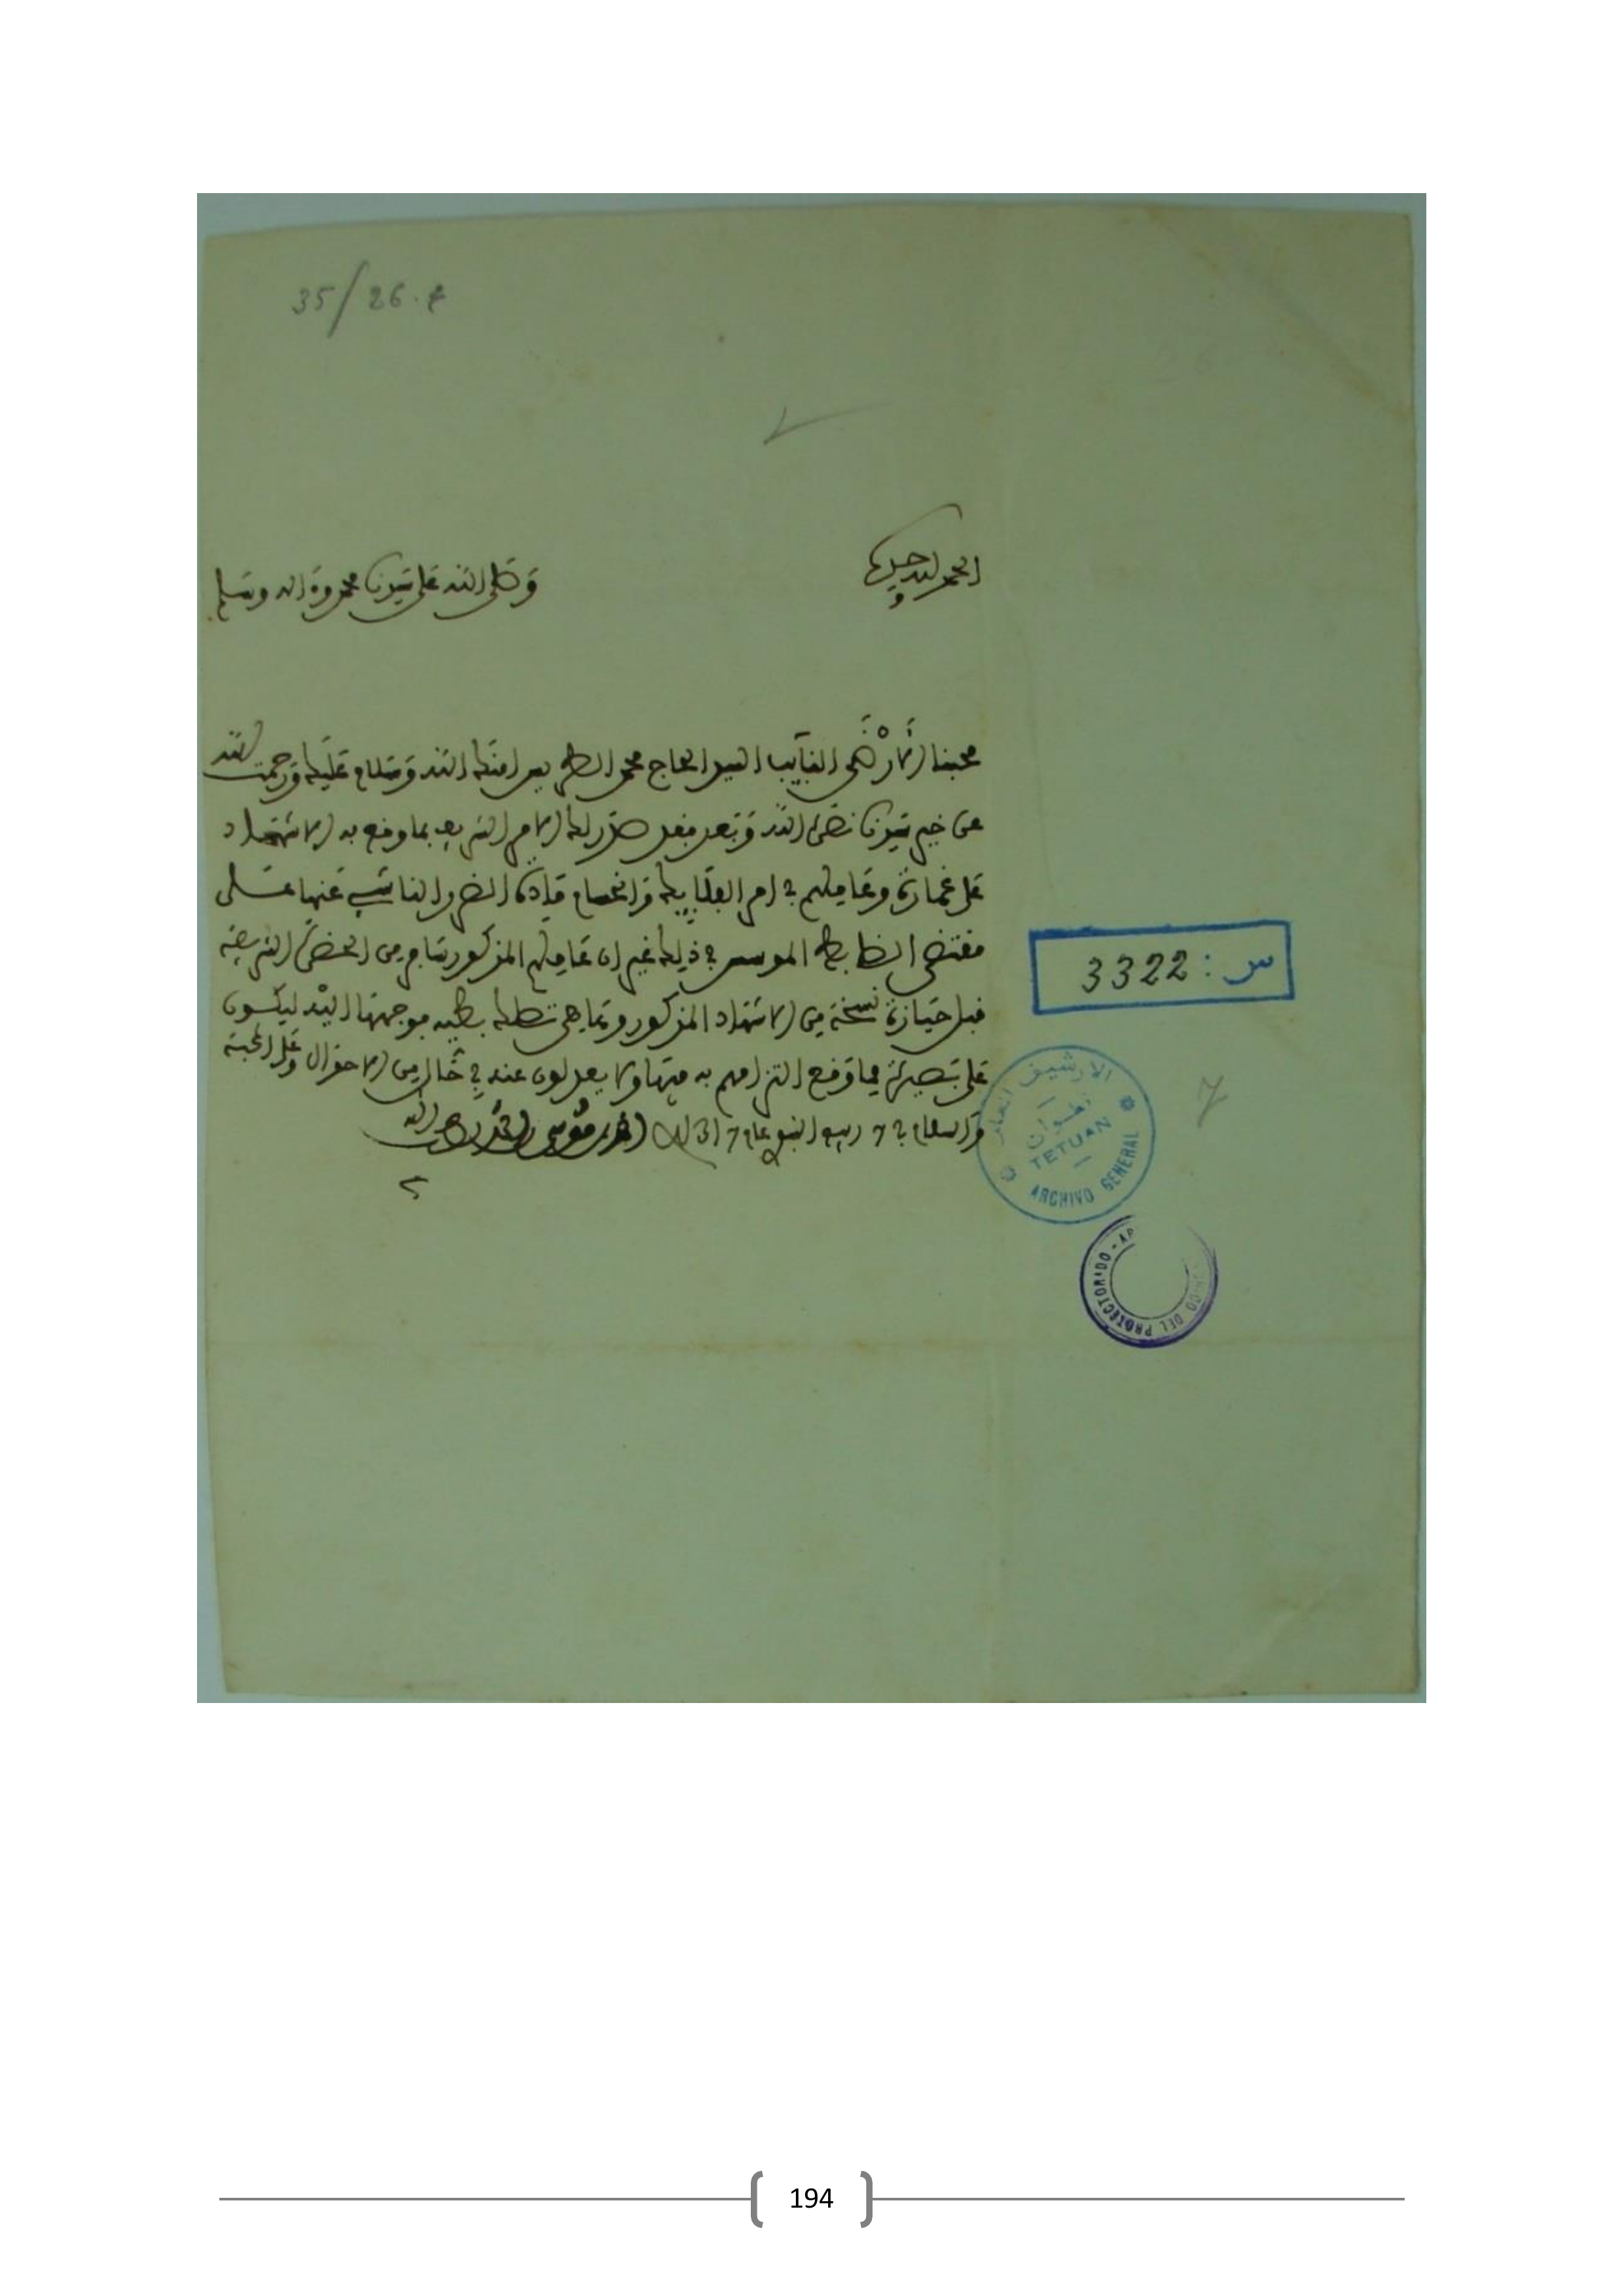 35/26.
الحمد لله وحده
وصلى الله على سيدنا محمد وءاله وسلم
محبنا الأرضى النائب السيد الحاج محمد الطريس امنك الله وسلام عليك ورحمت الله
عن خير سيدنا نصره الله وبعد فقد صدر لك الامر الشريف بما وقع به الاشهاد
على غمارة وعاملهم في امر الفلايك وانحسام مادة الضرر الناشئ عنها على
مقتضى الضابط الموسس في ذلك غير ان عاملهم المذكور سافر من الحضرة الشريفة
قبل حيازة نسخة من الاشهاد المذكور وها هي تصلك بطيه فوجهها اليه ليكون
على بصيرة مما وقع التزامهم به فيها ولا يعدلون عنه في حال من الاحوال وعلى المحبة
والسلام في 7 ربيع النبوي عام 1317 احمد بن موسى بن احمد لطف الله به
س : 3322
الارشيف العام
تطوان
TETUAN
ARCHIVO GENERAL
DEL PROTECTORADO
7
194